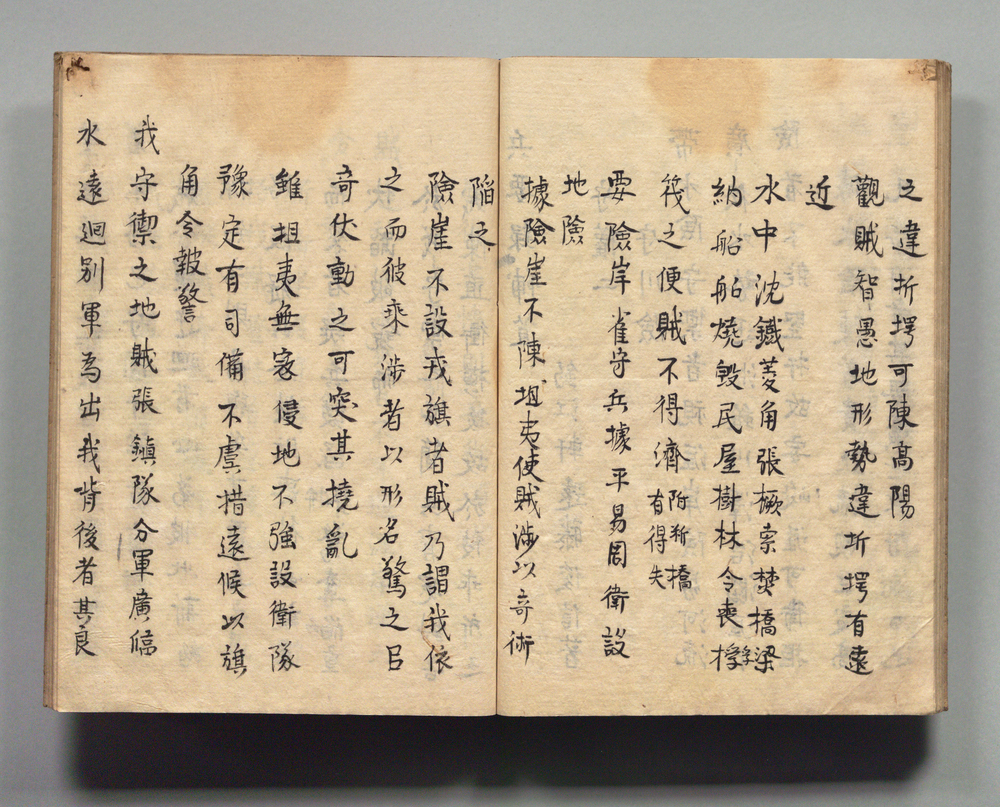 之違折堮可陳高陽
觀賊智愚地形勢違圻堮有遠
近
水中沈鐵菱角張橛索焚橋梁
納船舩燒毀民屋樹林令喪桴
筏之便賊不得濟 附斬橋有得失
要險岸雀守兵據平易固衛設
地險
據險崖不陳坦夷使賊涉以奇術
陷之
險崖不設戎旗者賊乃謂我依
之而彼乘涉者以形名驚之巨
奇伏動之可突其撓亂
雖坦夷無寇侵地不強設衛隊
豫定有司備不虞措遠候以旗
角令報警
我守禦之地賊張鎮隊分軍廣臨
水遠迴別軍為出我背後者其良